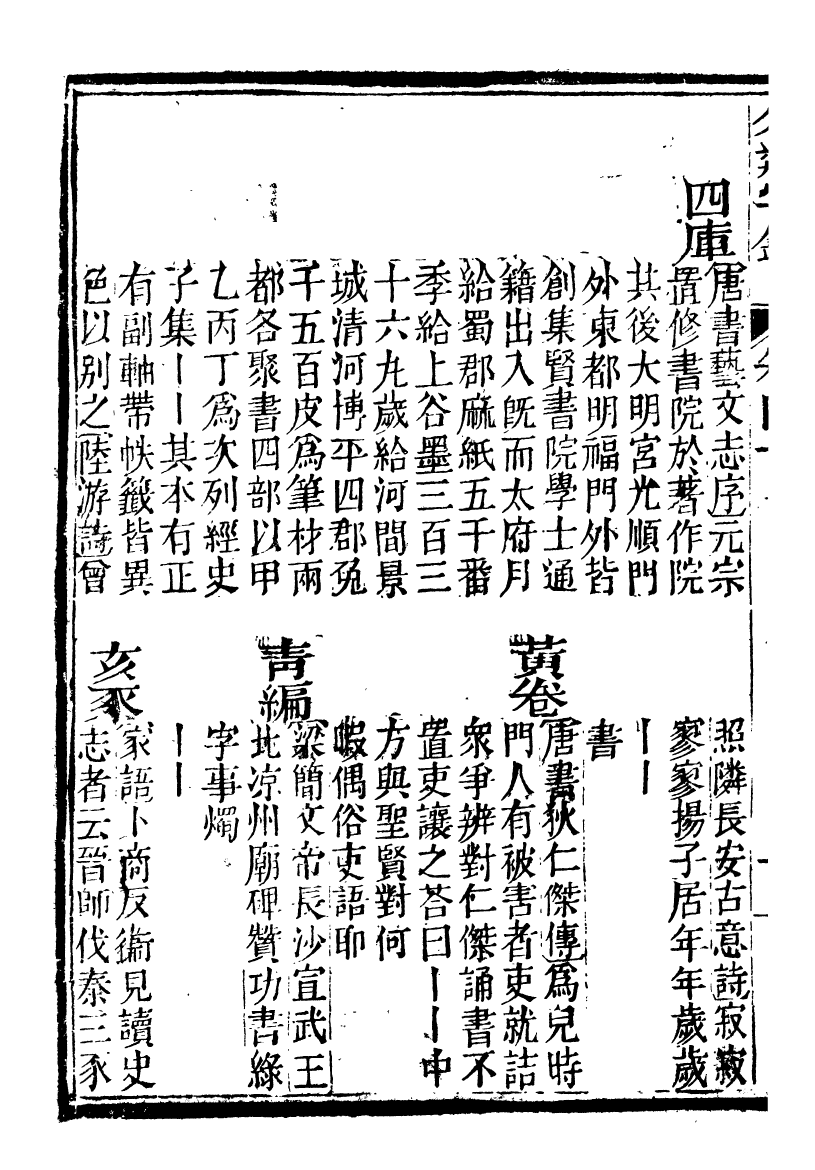 四庫
唐書藝文志序元宗
置修書院於著作院
其後大明宮光順門
外東都明福門外皆
創集賢書院學士通
籍出入旣而太府月
給蜀郡麻紙五千番
季給上谷墨三百三
十六丸歲給河間景
城清河博平四郡兔
千五百皮爲筆材兩
都各聚書四部以甲
乙丙丁爲次列經史
子集丨丨其本有正
有副軸帶帙籤皆異
色以别之陸游詩曾
照隣長安古意詩寂寂
寥寥揚子居年年歲歲
丨丨
書
黃卷
唐書狄仁傑傳爲兒時
門人有被害者吏就詰
衆爭辨對仁傑誦書不
置吏讓之荅曰丨丨中
方與聖賢對何
暇偶俗吏語耶
青編
梁簡文帝長沙宣武王
北凉州廟碑贊功書綠
字事燭
丨丨
亥豕
家語卜商反衞見讀史
志者云晉師伐秦三豕